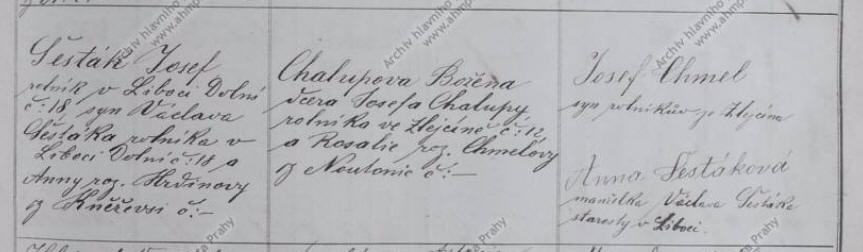 Šesták Josef
rolník v Liboci Dolní
č: 18, syn Václava
Šestáka rolníka v
Liboci Dolní č: 18 a
Anny roz. Hrdinovy
z Kněževsi č:–
Chalupova Božena
dcera Josefa Chalupy
rolníka ve Zlejčíně č: 12
a Rosalie roz. Chmelovy
z Noutonic č:–
Josef Chmel
syn rolníkův ze Zlejčína
Anna Šestáková
manželka Václava Šestáka
starosty v Liboci.
Archiv hlavního
www.ahmp
Archiv hlavního
www.ahmp
Archiv hlavního
www.ahmp
Prahy